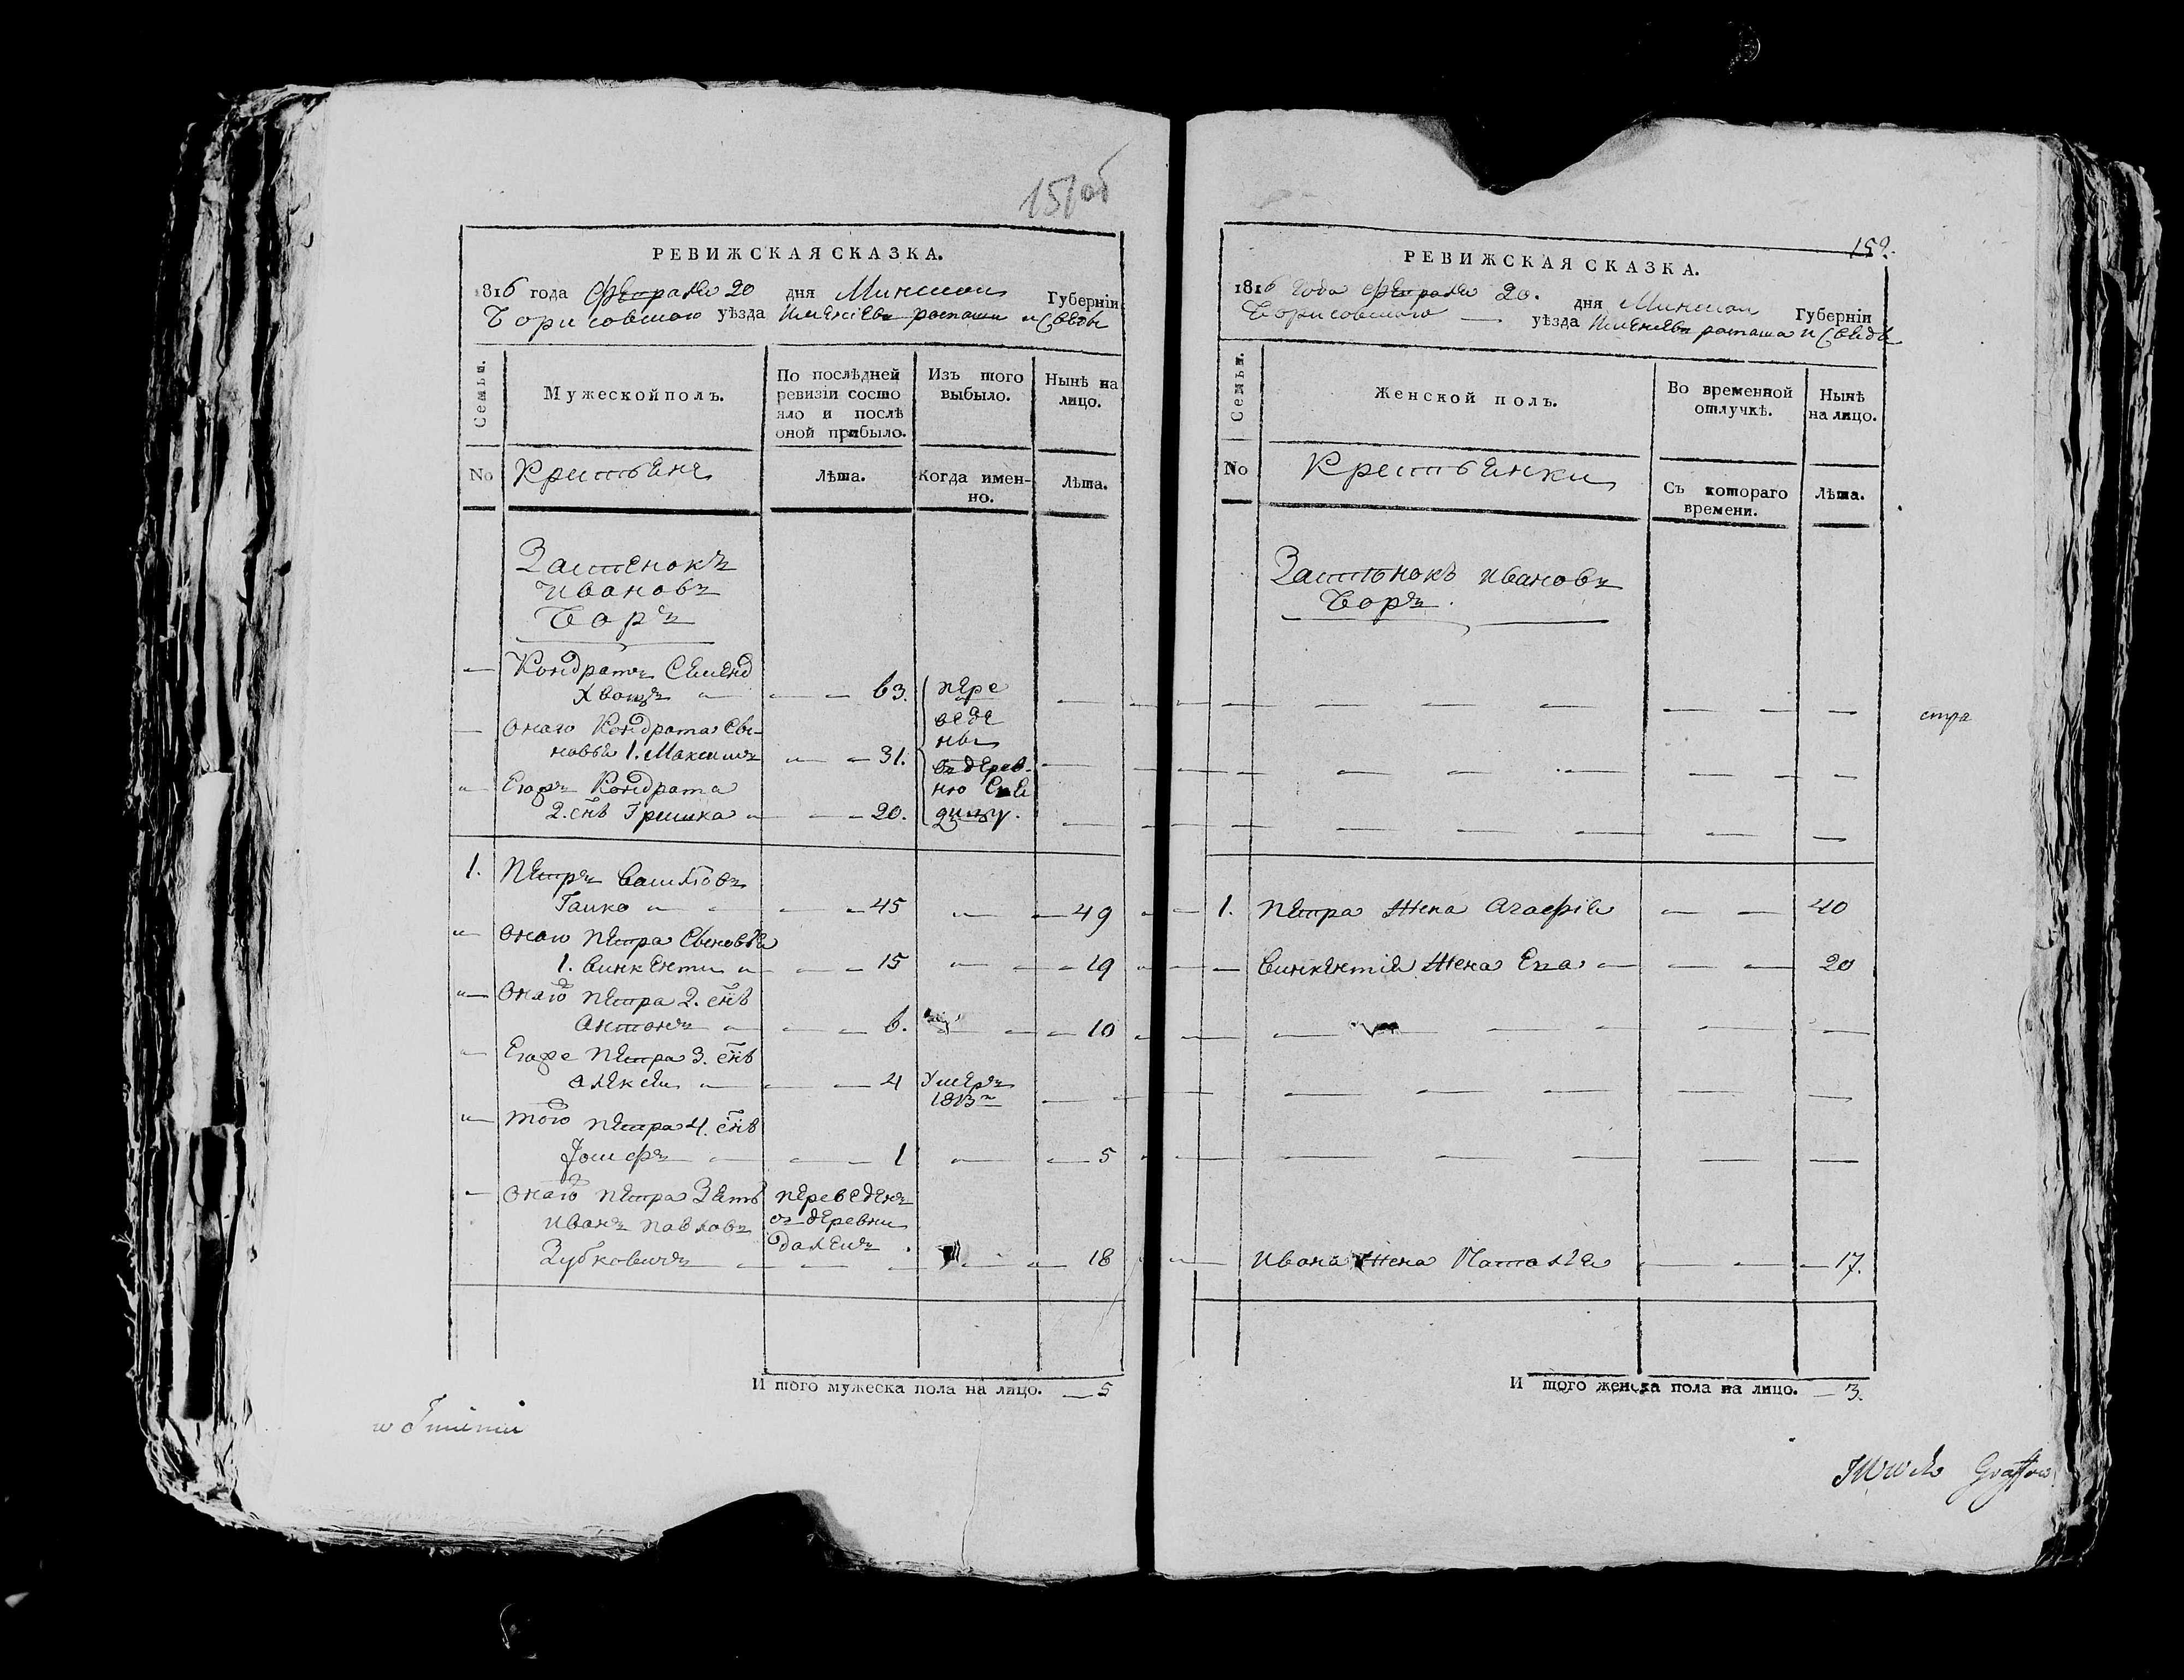 151об
РЕВИЖСКАЯ СКАЗКА.
1816 года Февраля 20 дня Минской Губерніи
Борисовского уѣзда Имѣнiевъ и Сведы
Семьи.
Мужеской полъ.
По послѣдней ревизіи состо
яло и послѣ
оной прибыло.
Изъ того
выбыло.
Нынѣ на
лицо.
No
Крестьяне
Лѣта.
Когда имен-
но.
Лѣта.
Застенокъ
Ивановъ
Боръ
Кондратъ Семенов
Хвощъ 63.
пере
веде
ны
въ дерев-
ню
Онаго Кондрата Сы-
новья 1. Максимъ 31.
Егожъ Кондрата
2. снъ Гришка 20.
1. Петръ Васильевъ
Гайко 45 49
Онаго Петра Сыновья
1. Винкенти 15 19
Онаго Петра 2. снъ
Антонъ 6. 10
Егоже Петра 3. снъ
Алексей 4 Умеръ
1813
того Петра 4. снъ
Іосифъ 1 5
Онаго Петра Зять
переведенъ
Иванъ Павловъ
зъ деревни
Зубковичъ 18
И того мужеска пола на лицо. 5
152.
РЕВИЖСКАЯ СКАЗКА.
1816 года Февраля 20. дня Минской Губерніи
Борисовского уѣзда Имѣнiевъ и Сведы
Семьи.
Женской полъ.
Во временной
отлучкѣ.
Нынѣ
на лицо.
No
Крестьянки
Съ котораго
времени.
Лѣта.
Застѣнокъ Ивановъ
Боръ.
стра
1. Петра Жена Агафія 40
Винкентія Жена Ева 20
Ивана Жена Наталія 17.
И того женска пола на лицо. 3.